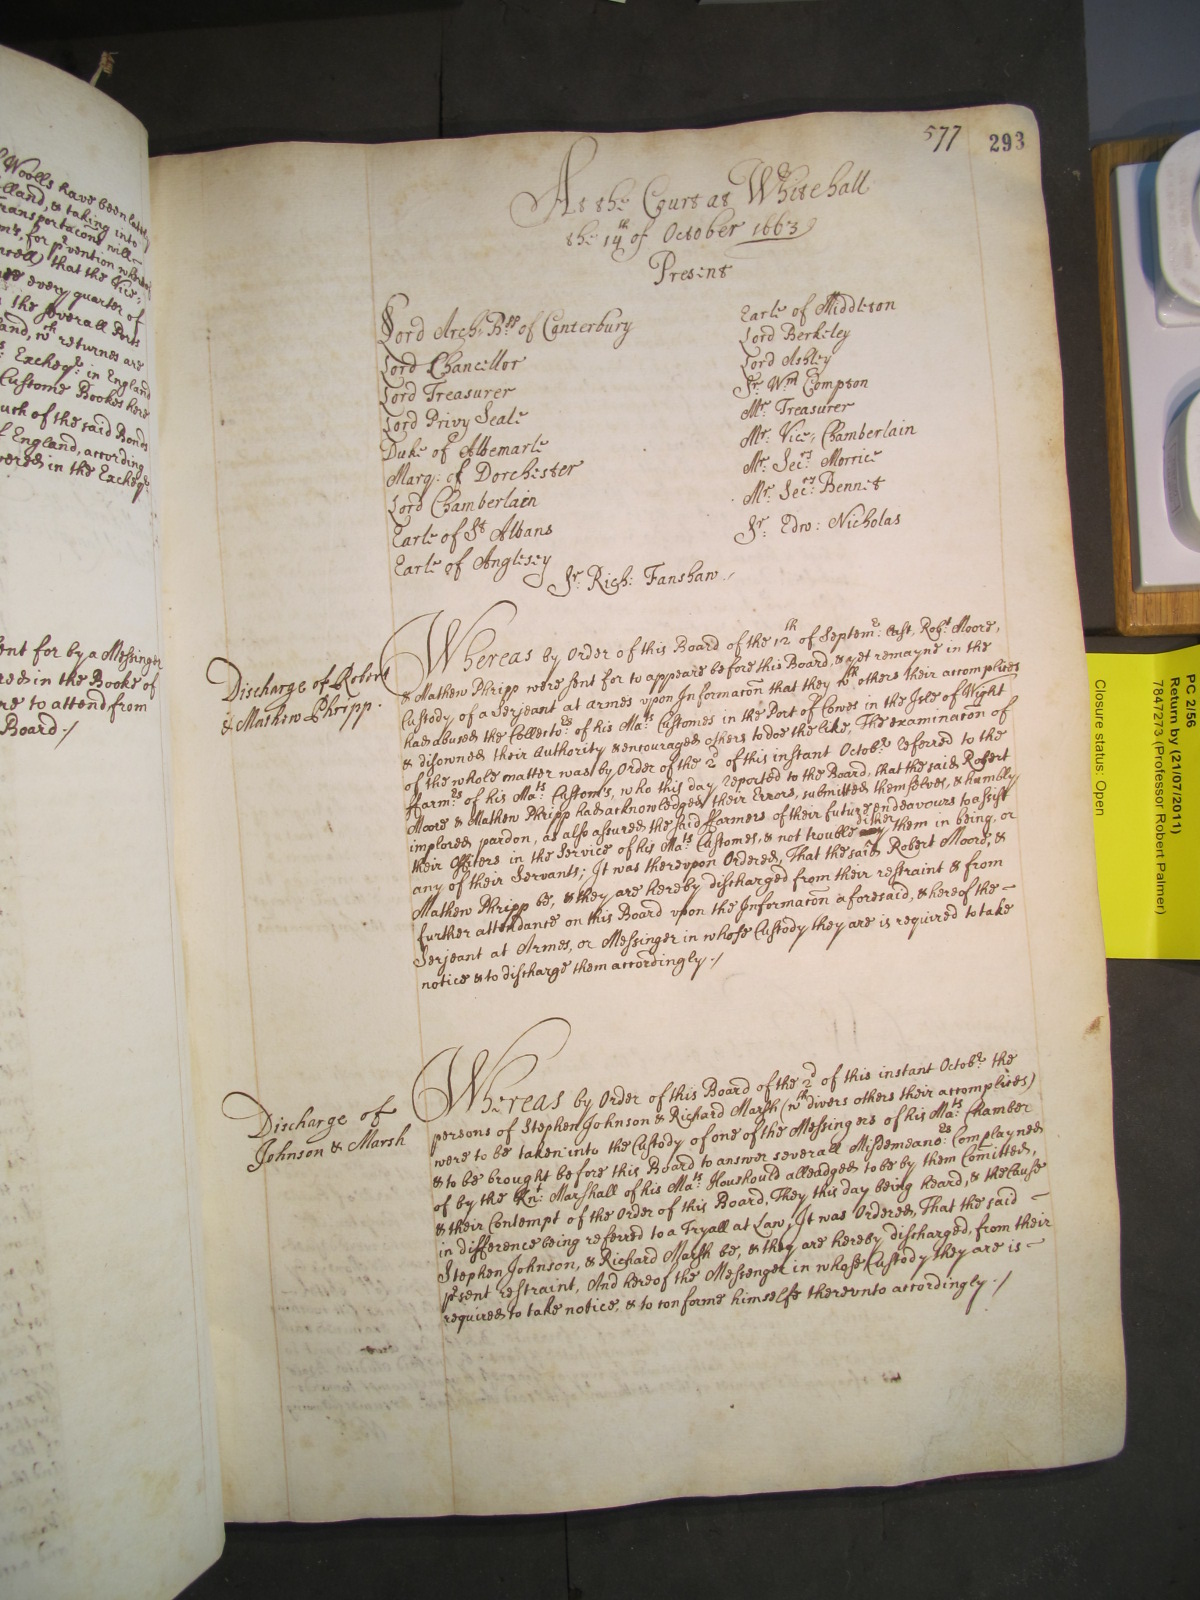 Woolls have been lately
lland, & taking into
ransportacons will
ms, for p̄vention whereof
) that the Vice-
every quarter of
the severall Ports
land, wch returnes are
Excheqr: in England
Custome Bookes here
uch of the said Bonds
f England, according
vered in the Excheqr
ent for by a Messinger
red in the Booke of
re to attend from
Board./
577 293
At the Court at Whitehall
the 14th of October 1663
Present
Lord Arch: Bpp of Canterbury
Lord Chancellor
Lord Treasurer
Lord Privy Seale
Duke of Albemarle
Marq: of Dorchester
Lord Chamberlain
Earle of St Albans
Earle of Anglesey
Earle of Middleton
Lord Berkeley
Lord Ashley
Sr. Wm Compton
Mr. Treasurer
Mr. Vice, Chamberlain
Mr. Secry: Morrice
Mr. Secry: Bennet
Sr. Edw: Nicholas
Sr. Rich: Fanshaw./
Discharge of Robert
& Mathew Phripp.
Whereas by Order of this Board of the 12th of Septemr: last, Robt Moore,
& Mathew Phripp were sent for to appeare before this Board, & yet remayne in the
Custody of a Serjeant at Armes upon Informacon that they wth others their accomplices
had abused the Collectors of his Mats Customes in the Port of Cowes in the Isle of Wight
& disowned their Authority & encouraged others to doe the like, The examinacon of
of the whole matter was by Order of the 2d of this instant Octobr referred to the
ffarmrs of his Mats Customs, who this day reported to the Board, that the said Robert
Moore & Mathew Phripp had acknowledged their Errors, submitted themselves, & humbly
implored pardon, as also assured the said ffarmers of their future endeavours to assist
their Officers in the Service of his Mats Customes, & not trouble either them in being, or
any of their Servants; It was therevpon Ordered, That the said Robert Moore, &
Mathew Phripp be, & they are hereby discharged from their restraint & from
further attendance on this Board vpon the Informacon aforesaid, & hereof the
Serjeant at Armes, or Messinger in whose Custody they are is required to take
notice & to discharge them accordingly./
Discharge of
Johnson & Marsh
Whereas by Order of this Board of the 2d of this instant Octobr the
persons of Stephen Johnson & Richard Marsh (wth divers others their accomplices)
were to be taken into the Custody of one of the Messingers of his Mats Chamber
& to be brought before this Board to answer severall Misdemeanors Complayned
of by the Knt: Marshall of his Mats Houshould alleadged to be by them Comitted,
& their Contempt of the Order of this Board, They this day being heard, & the cause
in difference being referred to a Tryall at Law, It was Ordered, That the said
Stephen Johnson, & Richard Marsh be, & they are hereby discharged, from their
p̄sent restraint, And hereof the Messenger in whose Custody they are is
required to take notice, & to conforme himselfe therevnto accordingly./
PC 2/56
Return by (21/07/2011)
7847273 (Professor Robert Palmer)
Closure status: Open